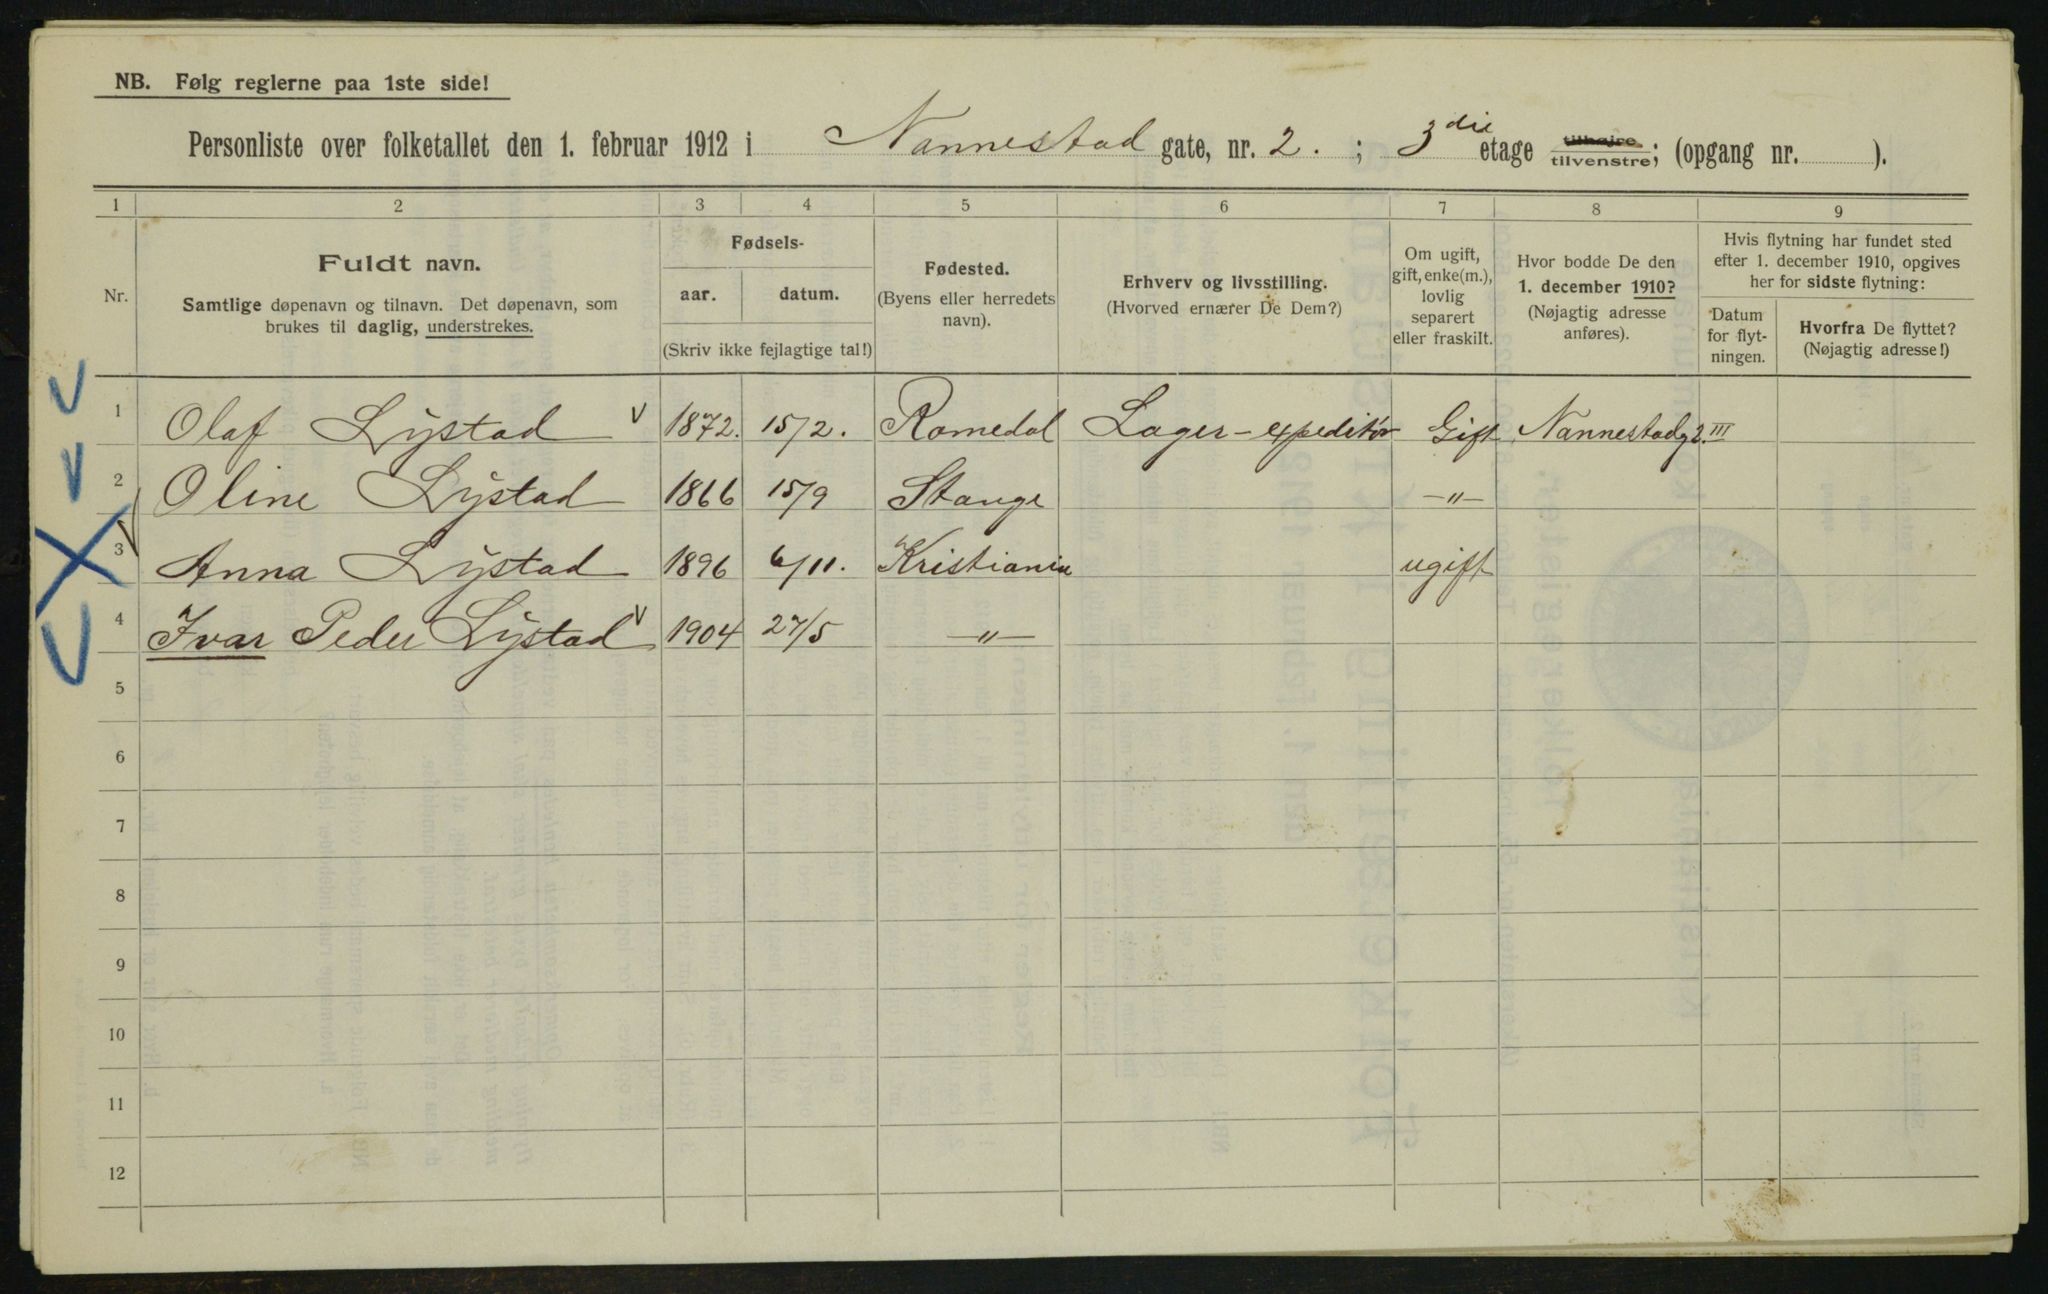 NB. Følg reglerne paa 1ste side!
Personliste over folketallet den 1. februar 1912 i Nannestad gate, nr. 2. ; 3die etage tilhøjre tilvenstre; (opgang nr. ).
1 2 3 4 5 6 7 8 9
Nr.
Fuldt navn.
Samtlige døpenavn og tilnavn. Det døpenavn, som
brukes til daglig, understrekes.
Fødsels-
aar. datum.
(Skriv ikke fejlagtige tal!)
Fødested.
(Byens eller herredets
navn).
Erhverv og livsstilling.
(Hvorved ernærer De Dem?)
Om ugift,
gift, enke(m.),
lovlig
separert
eller fraskilt.
Hvor bodde De den
1. december 1910?
(Nøjagtig adresse
anføres).
Hvis flytning har fundet sted
efter 1. december 1910, opgives
her for sidste flytning:
Datum
for flyt-
ningen.
Hvorfra De flyttet?
(Nøjagtig adresse!)
1 Olaf Lystad 1872. 15/2. Romedal Lager-expeditør Gift Nannestadg 2. III
2 Oline Lystad 1866 15/9 Stange —"—
3 Anna Lystad 1896 6/11. Kristiania ugift
4 Ivar Peder Lystad 1904 27/5 —"—
5
6
7
8
9
10
11
12